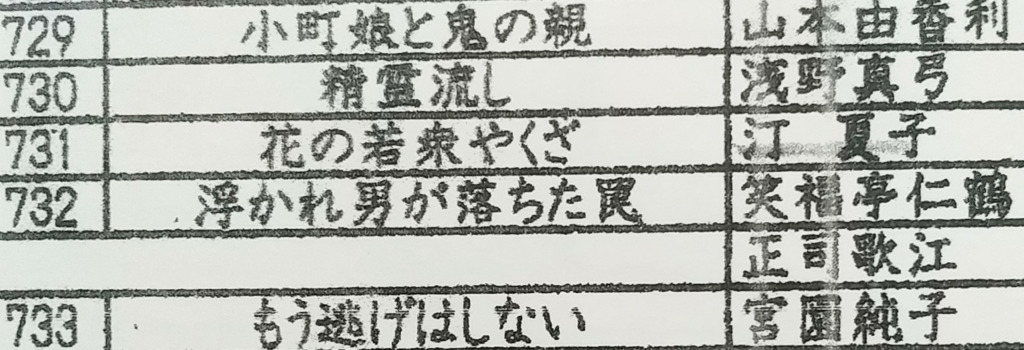 729 小町娘と鬼の親 山本由香利
730 精霊流し 浅野真弓
731 花の若衆やくざ 汀 夏子
732 浮かれ男が落ちた罠 笑福亭仁鶴
正司歌江
733 もう逃げはしない 宮園純子